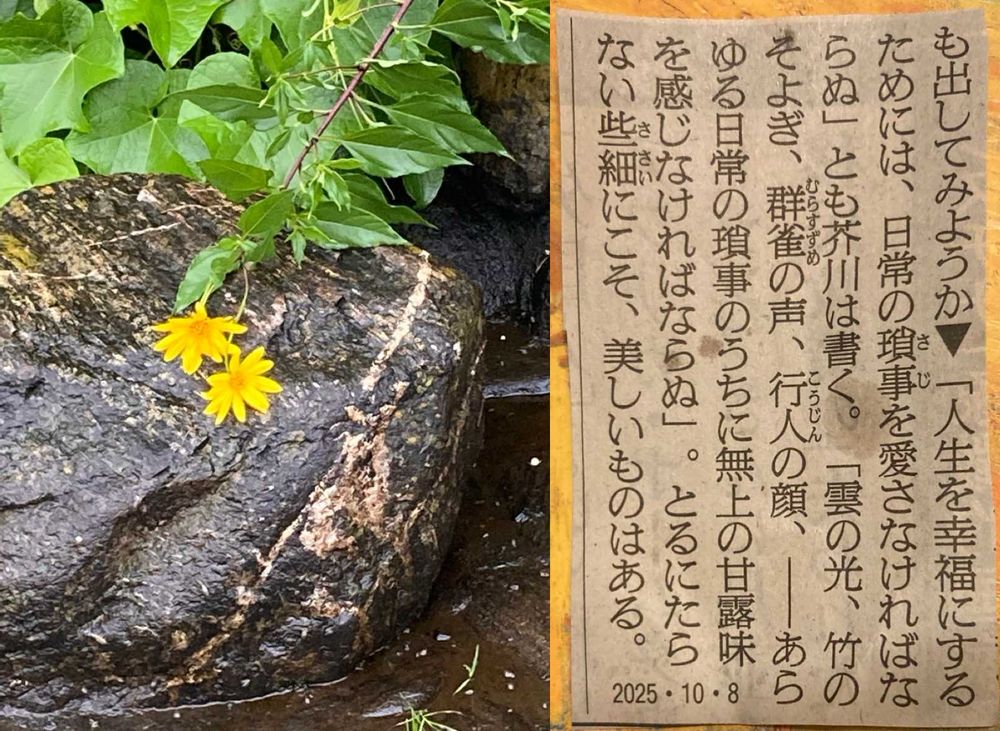 も出してみようか▼「人生を幸福にする
ためには、日常の瑣事を愛さなければな
らぬ」とも芥川は書く。「雲の光、竹の
そよぎ、群雀の声、行人の顔、――あら
ゆる日常の瑣事のうちに無上の甘露味
を感じなければならぬ」。とるにたら
ない些細にこそ、美しいものはある。
2025・10・8